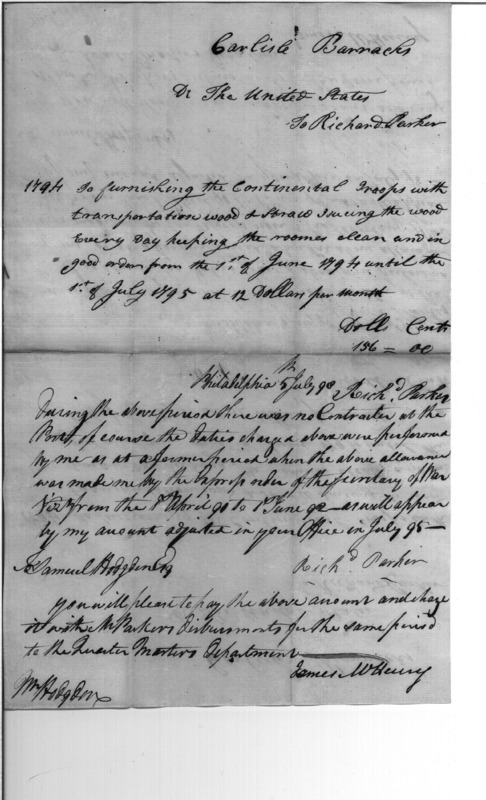 Carlisle Barracks
Dr The United States
To Richard Parker
1794 To furnishing the Continental Troops with
transportation wood & Straw the wood
Every Day keeping the roomes clean and in
good order from the 1st of June 1794 until the
1st of July 1795 at 12 Dollars per month
Dolls Cents
156 = 00
Philadelphia July 98 Richd Parker
During the above period there was no Contractor at the
Post, of course the duties charged above were performed
by me as at a former period when the above allowance
was made me by the Express order of the Secretary of War
from the 1st April to 1st June as will appear
by my account adjusted in your Office in July 95
Samuel Hodgdon Esq Richd Parker
You will please to pay the above amount and charge
it with Mr Parkers disbursments for the same period
to the Quarter Masters Department
James McHenry
Mr Hodgdon